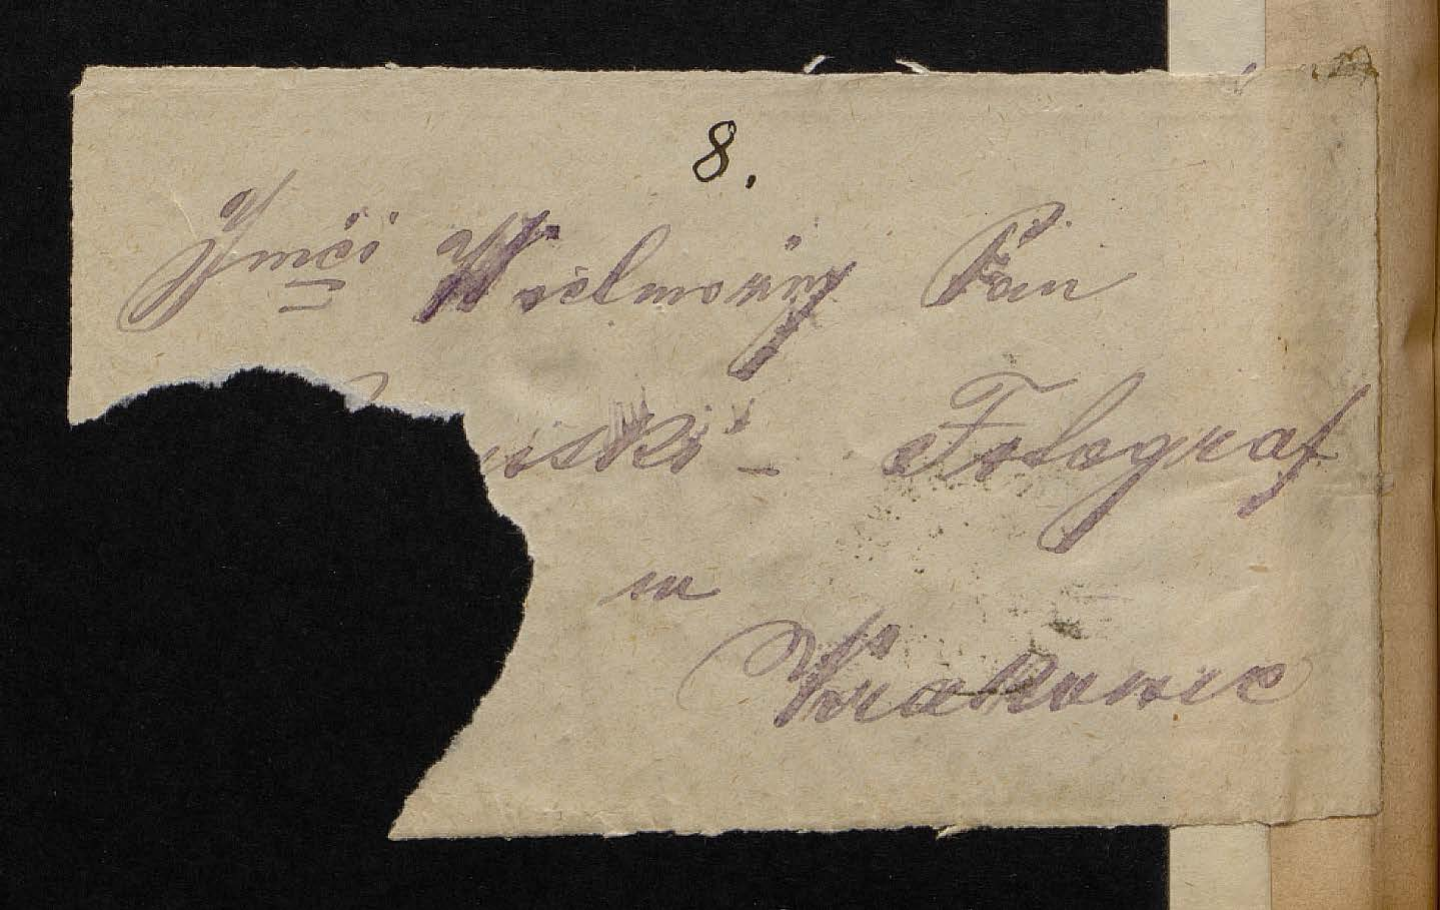 8.
Jmći Wielmożny Pan
ński - Fotograf
w
Krakowie